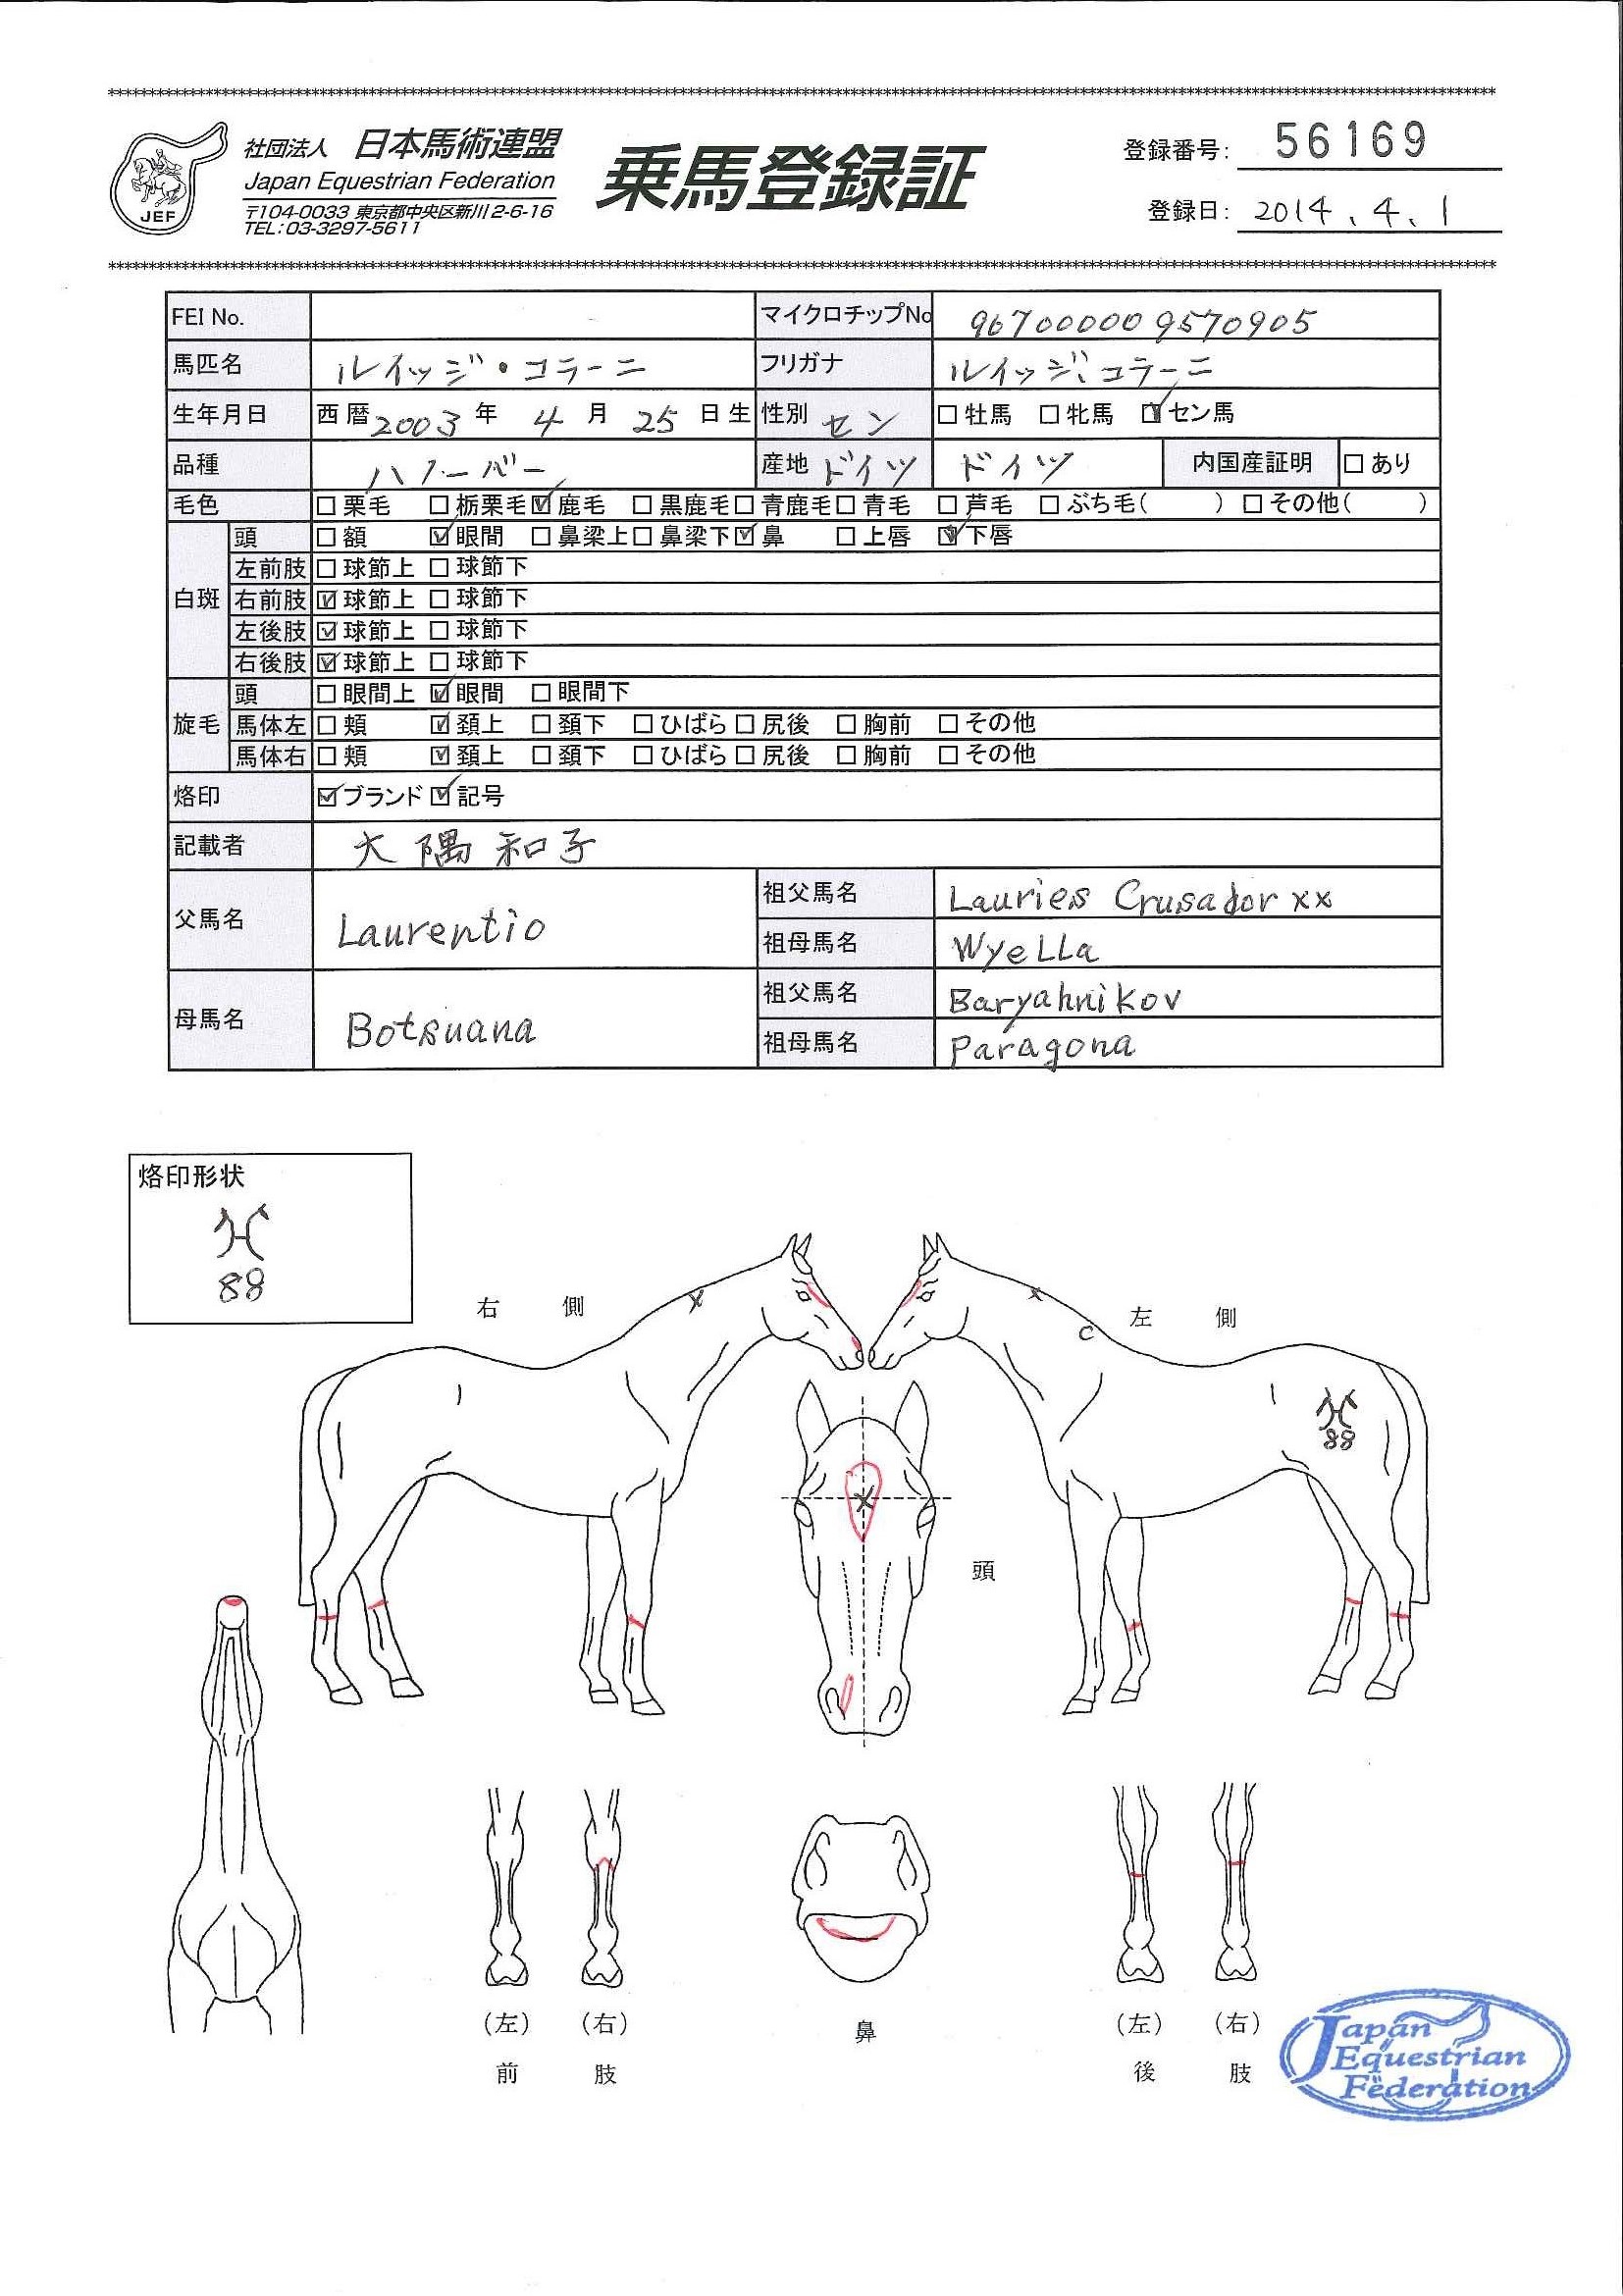 社団法人 日本馬術連盟
Japan Equestrian Federation
〒104-0033 東京都中央区新川2-6-16
TEL:03-3297-5611
JEF
乗馬登録証
登録番号: 56169
登録日: 2014.4.1
FEI No. マイクロチップNo 967000009570905
馬匹名 ルイッジ・コラーニ フリガナ ルイッジ、コラーニ
生年月日 西暦2003年 4月 25日生 性別 セン □牡馬 □牝馬 ☑セン馬
品種 ハノーバー 産地 ドイツ ドイツ 内国産証明 □あり
毛色 □栗毛 □栃栗毛 ☑鹿毛 □黒鹿毛 □青鹿毛 □青毛 □芦毛 □ぶち毛( ) □その他( )
白斑 頭 □額 ☑眼間 □鼻梁上 □鼻梁下 ☑鼻 □上唇 ☑下唇
左前肢 □球節上 □球節下
右前肢 ☑球節上 □球節下
左後肢 ☑球節上 □球節下
右後肢 ☑球節上 □球節下
旋毛 頭 □眼間上 ☑眼間 □眼間下
馬体左 □頬 ☑頚上 □頚下 □ひばら □尻後 □胸前 □その他
馬体右 □頬 ☑頚上 □頚下 □ひばら □尻後 □胸前 □その他
烙印 ☑ブランド ☑記号
記載者 大隅和子
父馬名 Laurentio 祖父馬名 Lauries Crusador xx
祖母馬名 Wyella
母馬名 Botsuana 祖父馬名 Baryahnikov
祖母馬名 Paragona
烙印形状
88
右 側
左 側
c
88
頭
(左) (右)
前 肢
鼻
(左) (右)
後 肢
Japan
Equestrian
Federation